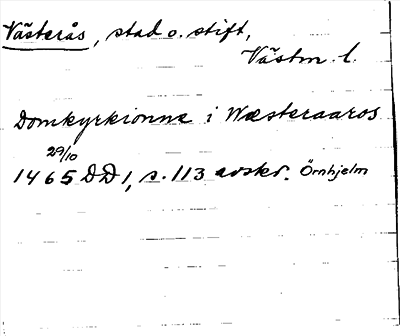 Västerås, stad o. stift,
Västm. l.
Domkyrkionne i Wæsteraaros
29/10
1465 DD1, s. 113 avskr. Örnhjelm